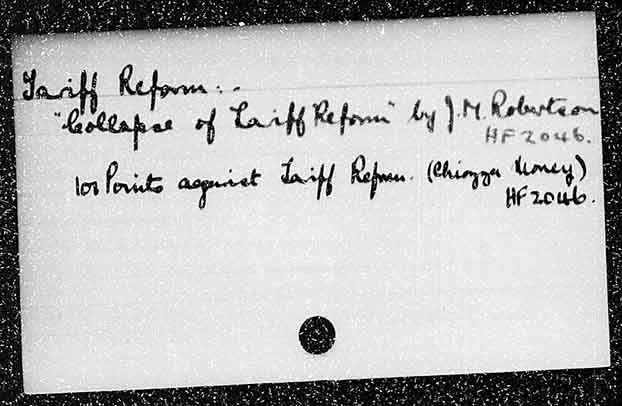 Tariff Reform:-
"Collapse of Tariff Reform" by J.M. Robertson
HF 2046.
100 Points against Tariff Reform. (Chiozza Money)
HF 2046.